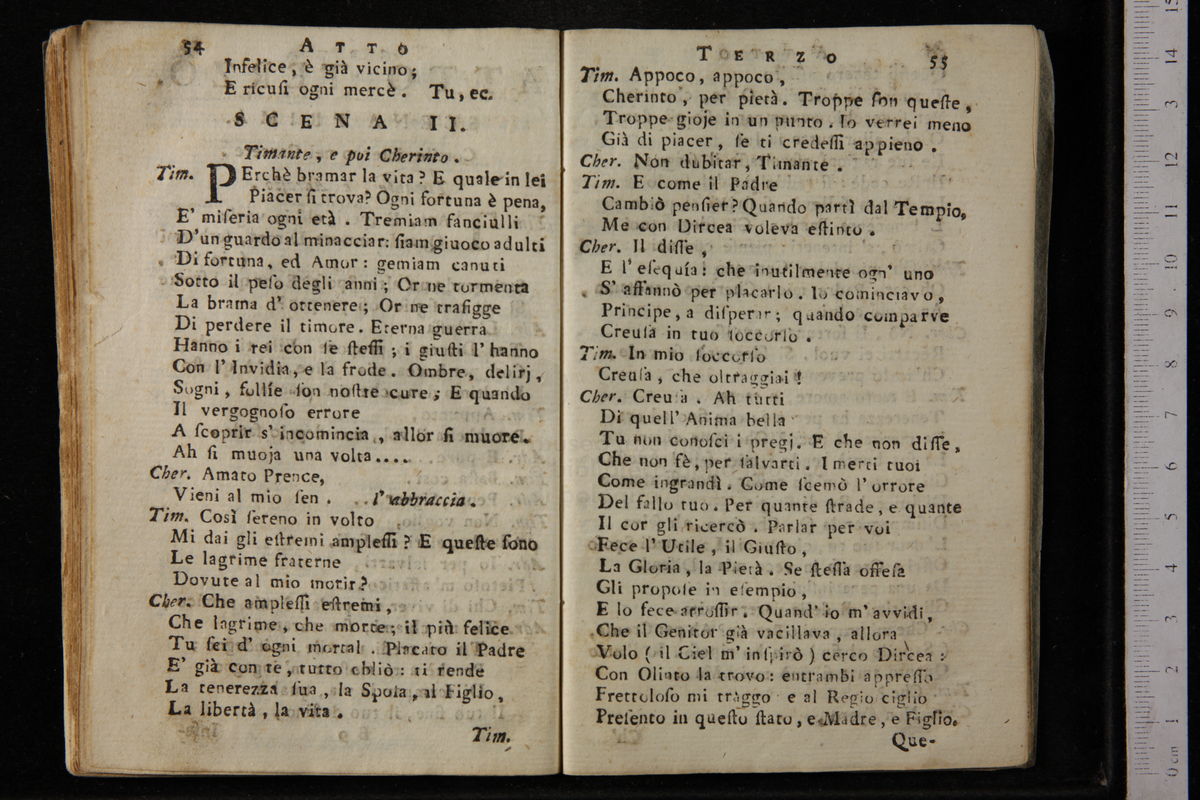 54 ATTO
Infelice, è già vicino;
E ricuſi ogni mercè. Tu, ec.
SCENA II.
Timante, e poi Cherinto.
Tim. PErchè bramar la vita? E quale in lei
Piacer ſi trova? Ogni fortuna è pena,
E' miſeria ogni età. Tremiam fanciulli
D'un guardo al minacciar: ſiam giuoco adulti
Di fortuna, ed Amor: gemiam canuti
Sotto il peſo degli anni; Or ne tormenta
La brama d' ottenere; Or ne trafigge
Di perdere il timore. Eterna guerra
Hanno i rei con ſe ſteſſi; i giuſti l' hanno
Con l' Invidia, e la frode. Ombre, delirj,
Sogni, follíe ſon noſtre cure; E quando
Il vergognoſo errore
A ſcoprir s' incomincia, allor ſi muore.
Ah ſi muoja una volta....
Cher. Amato Prence,
Vieni al mio ſen. l' abbraccia.
Tim. Così ſereno in volto
Mi dai gli eſtremi ampleſſi? E queſte ſono
Le lagrime fraterne
Dovute al mio morir?
Cher. Che ampleſſi eſtremi,
Che lagrime, che morte; il più felice
Tu ſei d' ogni mortal. Placato il Padre
E' già con te, tutto obliò: ti rende
La tenerezza ſua, la Spoſa, il Figlio,
La libertà, la vita.
Tim.
TERZO 55
Tim. Appoco, appoco,
Cherinto, per pietà. Troppe ſon queſte,
Troppe gioje in un punto. Io verrei meno
Già di piacer, ſe ti credeſſi appieno.
Cher. Non dubitar, Timante.
Tim. E come il Padre
Cambiò penſier? Quando partì dal Tempio,
Me con Dircea voleva eſtinto.
Cher. Il diſſe,
E l' eſequía: che inutilmente ogn' uno
S' affannò per placarlo. Io cominciavo,
Principe, a diſperar; quando comparve
Creuſa in tuo ſoccorſo.
Tim. In mio ſoccorſo
Creuſa, che oltraggiai!
Cher. Creuſa. Ah tutti
Di quell' Anima bella
Tu non conoſci i pregj. E che non diſſe,
Che non fè, per ſalvarti. I merti tuoi
Come ingrandì. Come ſcemò l' orrore
Del fallo tuo. Per quante ſtrade, e quante
Il cor gli ricercò. Parlar per voi
Fece l' Utile, il Giuſto,
La Gloria, la Pietà. Se ſteſſa offeſa
Gli propoſe in eſempio,
E lo fece arroſſir. Quand' io m' avvidi,
Che il Genitor già vacillava, allora
Volo (il Ciel m' inſpirò) cerco Dircea:
Con Olinto la trovo: entrambi appreſſo
Frettoloſo mi traggo e al Regio ciglio
Preſento in queſto ſtato, e Madre, e Figlio.
Que-
0 cm 1 2 3 4 5 6 7 8 9 10 11 12 13 14 15